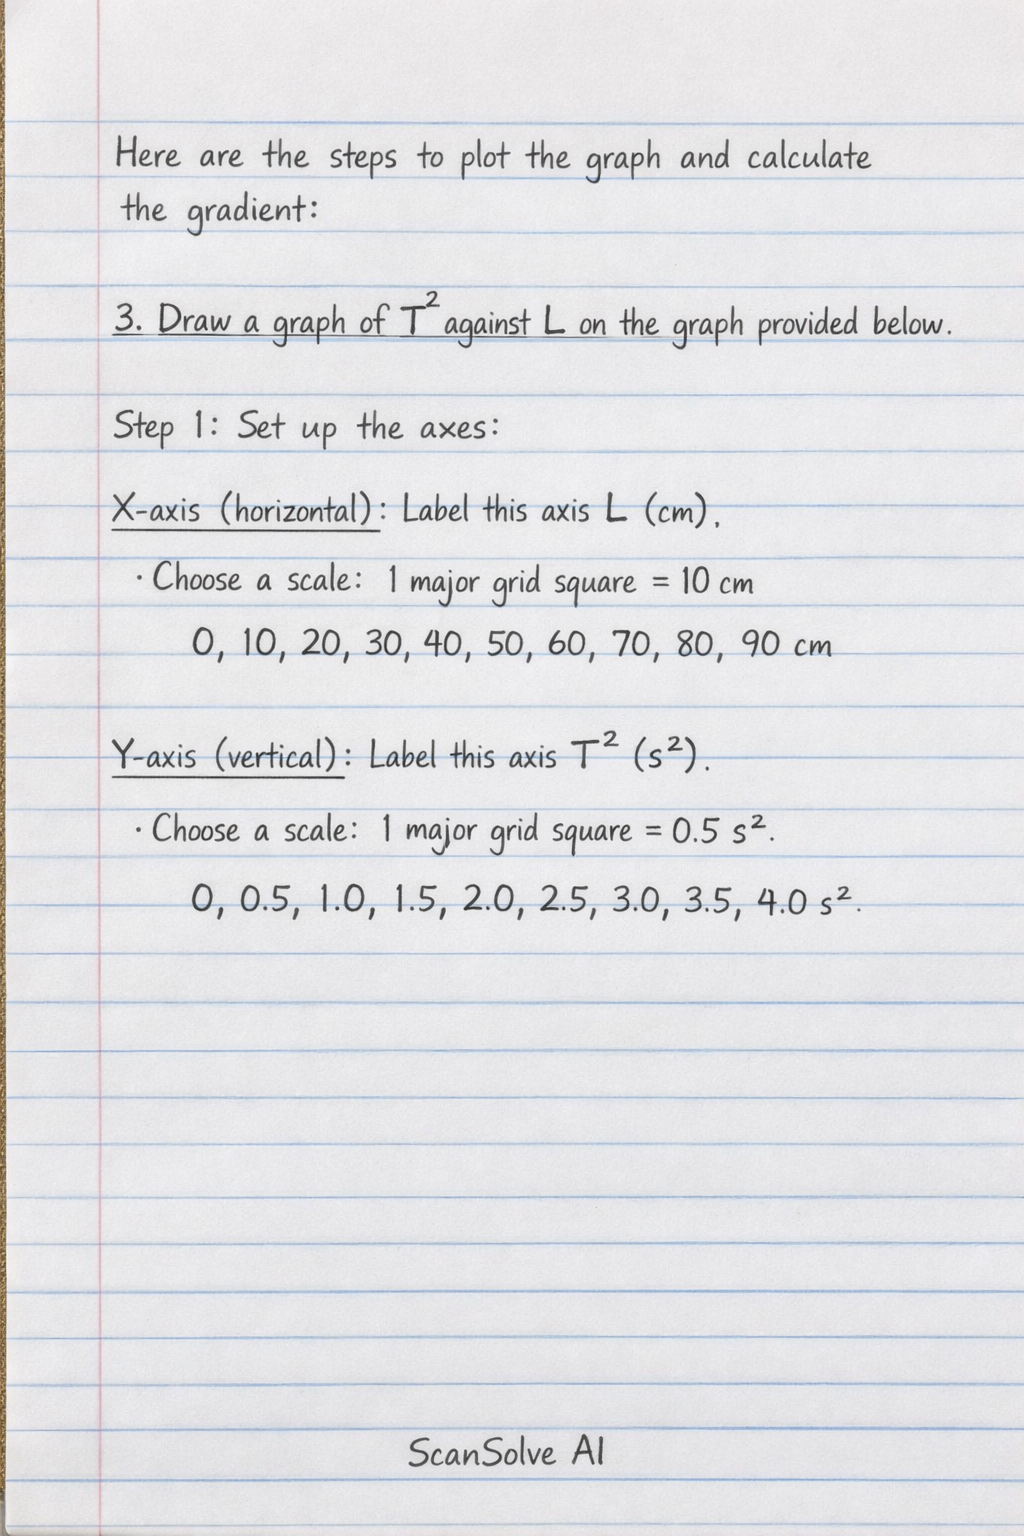 Here are the steps to plot the graph and calculate
the gradient:
3. Draw a graph of T² against L on the graph provided below.
Step 1: Set up the axes:
X-axis (horizontal): Label this axis L (cm).
· Choose a scale: 1 major grid square = 10 cm
0, 10, 20, 30, 40, 50, 60, 70, 80, 90 cm
Y-axis (vertical): Label this axis T² (s²).
· Choose a scale: 1 major grid square = 0.5 s².
0, 0.5, 1.0, 1.5, 2.0, 2.5, 3.0, 3.5, 4.0 s².
ScanSolve AI